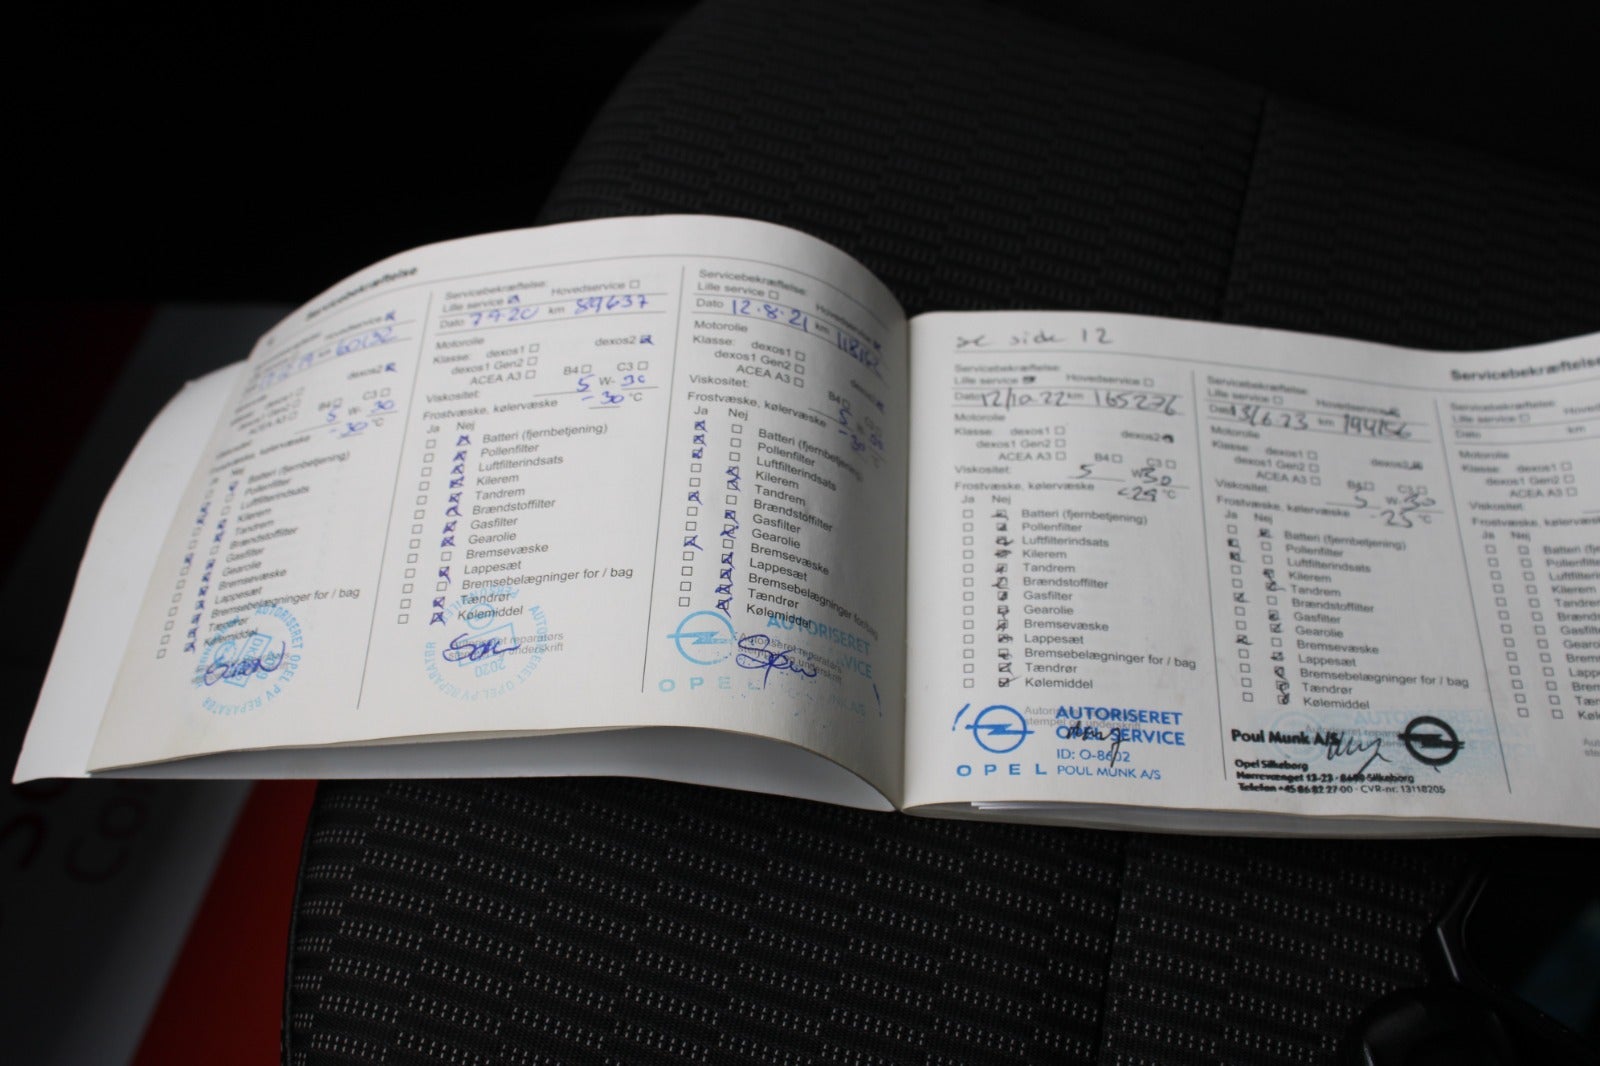 Servicebekræftelse
Hovedservice
60132
dexos2
B4 C3
ACEA A3
5 W- 30
-30 °C
Nej
Batteri (fjernbetjening)
Pollenfilter
Luftfilterindsats
Kilerem
Tandrem
Brændstoffilter
Gasfilter
Gearolie
Bremsevæske
Lappesæt
Bremsebelægninger for / bag
Tændrør
Kølemiddel
AUTORISERET OPEL PV REPARATØR
Servicebekræftelse:
Lille service Hovedservice
Dato 7 9-20 km 89637
Motorolie
Klasse: dexos1 dexos2
dexos1 Gen2
ACEA A3 B4 C3
Viskositet: 5 W- 30
Frostvæske, kølervæske -30 °C
Ja Nej
Batteri (fjernbetjening)
Pollenfilter
Luftfilterindsats
Kilerem
Tandrem
Brændstoffilter
Gasfilter
Gearolie
Bremsevæske
Lappesæt
Bremsebelægninger for / bag
Tændrør
Kølemiddel
AUTORISERET OPEL PV REPARATØR
2020
Servicebekræftelse:
Lille service Hovedservice
Dato 12.8.21 km
Motorolie
Klasse: dexos1
dexos1 Gen2
ACEA A3 B4
Viskositet: 5
Frostvæske, kølervæske -30
Ja Nej
Batteri (fjernbetjening)
Pollenfilter
Luftfilterindsats
Kilerem
Tandrem
Brændstoffilter
Gasfilter
Gearolie
Bremsevæske
Lappesæt
Bremsebelægninger for / bag
Tændrør
Kølemiddel
AUTORISERET
SERVICE
OPEL
se side 12
Servicebekræftelse
Servicebekræftelse:
Lille service Hovedservice
Dato 12/10.22 km 165276
Motorolie
Klasse: dexos1 dexos2
dexos1 Gen2
ACEA A3 B4 C3
Viskositet: 5 W 30
Frostvæske, kølervæske <25 °C
Ja Nej
Batteri (fjernbetjening)
Pollenfilter
Luftfilterindsats
Kilerem
Tandrem
Brændstoffilter
Gasfilter
Gearolie
Bremsevæske
Lappesæt
Bremsebelægninger for / bag
Tændrør
Kølemiddel
AUTORISERET
OPEL SERVICE
ID: O-8602
OPEL POUL MUNK A/S
Servicebekræftelse:
Lille service Hovedservice
Dato 13/6.23 km 194156
Motorolie
Klasse: dexos1 dexos2
dexos1 Gen2
ACEA A3 B4 C3
Viskositet: 5 W- 30
Frostvæske, kølervæske -25 °C
Ja Nej
Batteri (fjernbetjening)
Pollenfilter
Luftfilterindsats
Kilerem
Tandrem
Brændstoffilter
Gasfilter
Gearolie
Bremsevæske
Lappesæt
Bremsebelægninger for / bag
Tændrør
Kølemiddel
Poul Munk A/S
Opel Silkeborg
Nørrevænget 13-23 · 8600 Silkeborg
Telefon +45 86 82 27 00 · CVR-nr: 13118205
Servicebekræftelse:
Lille service
Dato km
Motorolie
Klasse: dexos1
dexos1 Gen2
ACEA A3
Viskositet:
Frostvæske, kølervæske
Ja Nej